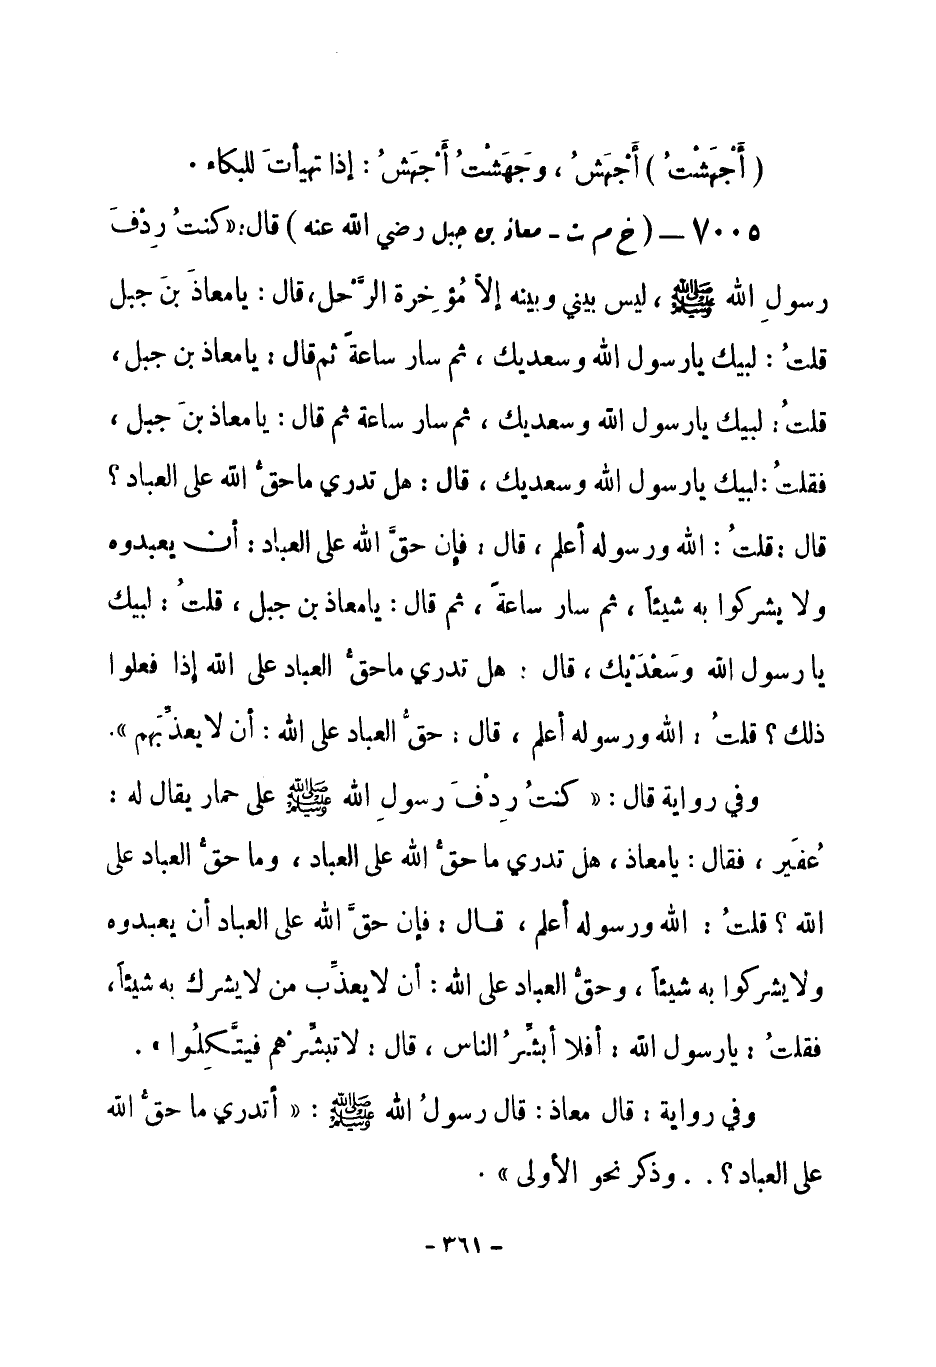 ( أَجْهَشْتُ ) أَجْهَشُ ، وجَهَشْتُ أَجهَشُ : إذا تهيأتَ للبكاء .
٧٠٠٥ – ( خ م ت - معاذ بن جبل رضي الله عنه ) قال : « كنتُ رِدْفَ
رسولِ الله ﷺ ، ليس بيني وبينه إلا مُؤخِرة الرَّحل ، قال : يا معاذَ بنَ جبل
قلتُ : لبيك يارسول الله وسعديك ، ثم سار ساعةً ثم قال : يامعاذ بن جبل ،
قلتُ : لبيك يارسول الله وسعديك ، ثم سار ساعة ثم قال : يا معاذ بنَ جبل ،
فقلتُ : لبيك يارسول الله وسعديك ، قال : هل تدري ماحقُّ الله على العباد ؟
قال : قلتُ : الله ورسوله أعلم ، قال : فإن حقَّ الله على العباد : أن يعبدوه
ولا يشركوا به شيئاً ، ثم سار ساعةً ، ثم قال : يامعاذ بن جبل ، قلتُ : لبيك
يا رسول الله وسَعْدَيْك ، قال : هل تدري ماحقُّ العباد على الله إذا فعلوا
ذلك ؟ قلتُ : الله ورسوله أعلم ، قال : حقُّ العباد على الله : أن لا يعذِّبَهم » .
وفي رواية قال : « كنتُ رِدْفَ رسولِ الله ﷺ على حمار يقال له :
عُفَير ، فقال : يامعاذ ، هل تدري ما حقُّ الله على العباد ، وما حقُّ العباد على
الله ؟ قلتُ : الله ورسوله أعلم ، قال : فإن حقَّ الله على العباد أن يعبدوه
ولا يشركوا به شيئاً ، وحقُّ العباد على الله : أن لا يعذِّب من لا يشرك به شيئاً ،
فقلتُ : يارسول الله : أفلا أبشِّرُ الناس ، قال : لا تبشِّرْهم فيتَّكِلُوا » .
وفي رواية : قال معاذ : قال رسولُ الله ﷺ : « أتدري ما حقُّ الله
على العباد ؟ . . وذكر نحو الأولى » .
- ٣٦١ -